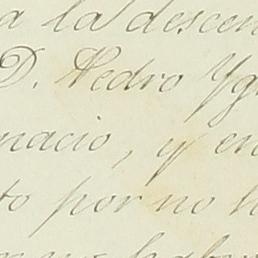 a la descen
D. Pedro Yg
nacio, y en
to por no h